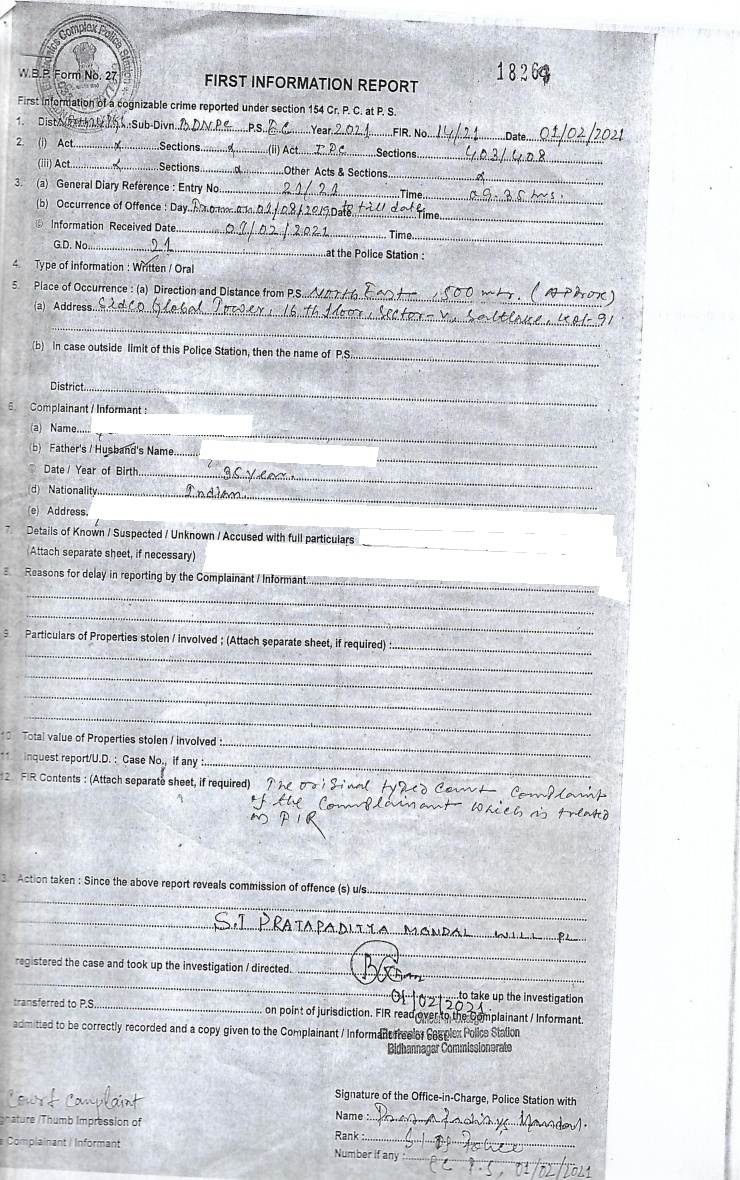 Electronics Complex Police Station
W.B.P. Form No. 27
18269
FIRST INFORMATION REPORT
First Information of a cognizable crime reported under section 154 Cr. P. C. at P. S.
1. Dist. Sub-Divn. BDNPC P.S. EC Year 2021 FIR. No. 14/21 Date 01/02/2021
2. (i) Act x Sections x (ii) Act IPC Sections 403/408
(iii) Act x Sections x Other Acts & Sections x
3. (a) General Diary Reference : Entry No. 21/21 Time 09.35 hrs.
(b) Occurrence of Offence : Day From on 01/08/2019 Date to till date Time
© Information Received Date 01/02/2021 Time
G.D. No. 21 at the Police Station :
4. Type of information : Written / Oral
5. Place of Occurrence : (a) Direction and Distance from P.S. North East, 500 mtr. (Approx)
(a) Address Global Tower, 16th floor, Sector-V, Saltlake, Kol-91
(b) In case outside limit of this Police Station, then the name of P.S.
District
6. Complainant / Informant :
(a) Name
(b) Father's / Husband's Name
Date / Year of Birth 36 Year.
(d) Nationality Indian
(e) Address
7. Details of Known / Suspected / Unknown / Accused with full particulars
(Attach separate sheet, if necessary)
8. Reasons for delay in reporting by the Complainant / Informant
9. Particulars of Properties stolen / involved ; (Attach separate sheet, if required) :
10. Total value of Properties stolen / involved :
11. Inquest report/U.D. : Case No., if any :
12. FIR Contents : (Attach separate sheet, if required) The original typed Court Complaint
of the Complainant which is treated
as FIR
3. Action taken : Since the above report reveals commission of offence (s) u/s
S.I PRATAPADITYA MANDAL WILL PL
registered the case and took up the investigation / directed.
01/02/2021 to take up the investigation
transferred to P.S. on point of jurisdiction. FIR read over to the Complainant / Informant.
admitted to be correctly recorded and a copy given to the Complainant / Informant free of cost.
Electronics Complex Police Station
Bidhannagar Commissionerate
Court Complaint
Signature /Thumb Impression of
Complainant / Informant
Signature of the Office-in-Charge, Police Station with
Name : Pratapaditya Mandal.
Rank : SI of Police
Number if any : EC P.S, 01/02/2021